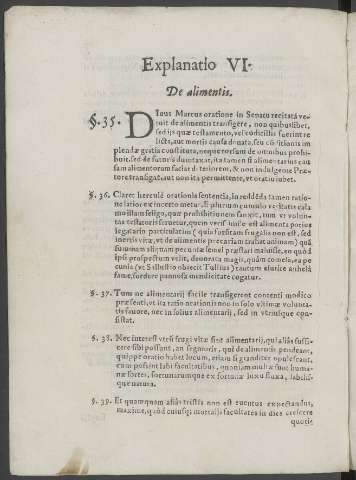 Explanatio VI.
De alimentis.
§. 35. DIuus Marcus oratione in Senatu recitata ve-
tuit de alimentis transigere, non quibuslibet,
sed ijs quæ testamento, vel codicillis fuerint re
licta, aut mortis causa donata, seu
plendæ gratia constituta, neque rursum de omnibus prohi-
buit, sed de futuris duntaxat, ita tamen si alimentarius cau
sam alimentorum faciat deteriorem, & non indulgente Præ-
tore transigat, aut non ita permittente, vt oratio iubet.
§. 36. Claret hercule orationis sententia, in reddenda tamen ratio-
ne latior ex incerto metus,
mo illam seligo, quæ prohibitionem sanxit, tum vt volun-
tas testatoris seruetur, quem versimile est alimenta potius
legatario particulatim (qui forsitam frugalia non est, sed
inertis vitæ, vt de alimentis precariam trahat animam) quâ
summam aliquam pecuniæ semel præstari maluisse, en quod
ipse prospectum velit, deuorata magis, quam comesa, ea pe
cunia (vt Sallustio obiecit Tullius) tantum
fame, sordere pannosa mendicitate cogatur.
§. 37. Tum ne alimentarij facile transigerent contenti modico
præsenti, vt ita ratio orationis non in solo vltimæ volunta-
tis fauore, nec in solius alimentarij, sed in vtrisque con-
sistat.
§. 38. Nec interest vtrû frugi vitæ sint alimentarij, qui alias suffi-
cere sibi possunt, an segnioris, qui de alimentis pendeant,
quippe oratio habet locum, etiam si granditer opulescant,
cum possint labi facultatibus, quoniam multæ sunt huma-
næ sortes, fortunarumque ex fortunæ luxu fluxa, labilis-
que natura.
§. 39. Et quamquam alias tristis non est euentus expectandus,
maxime, quòd cuiusq; mortalis facultates in dies crescere
quotis